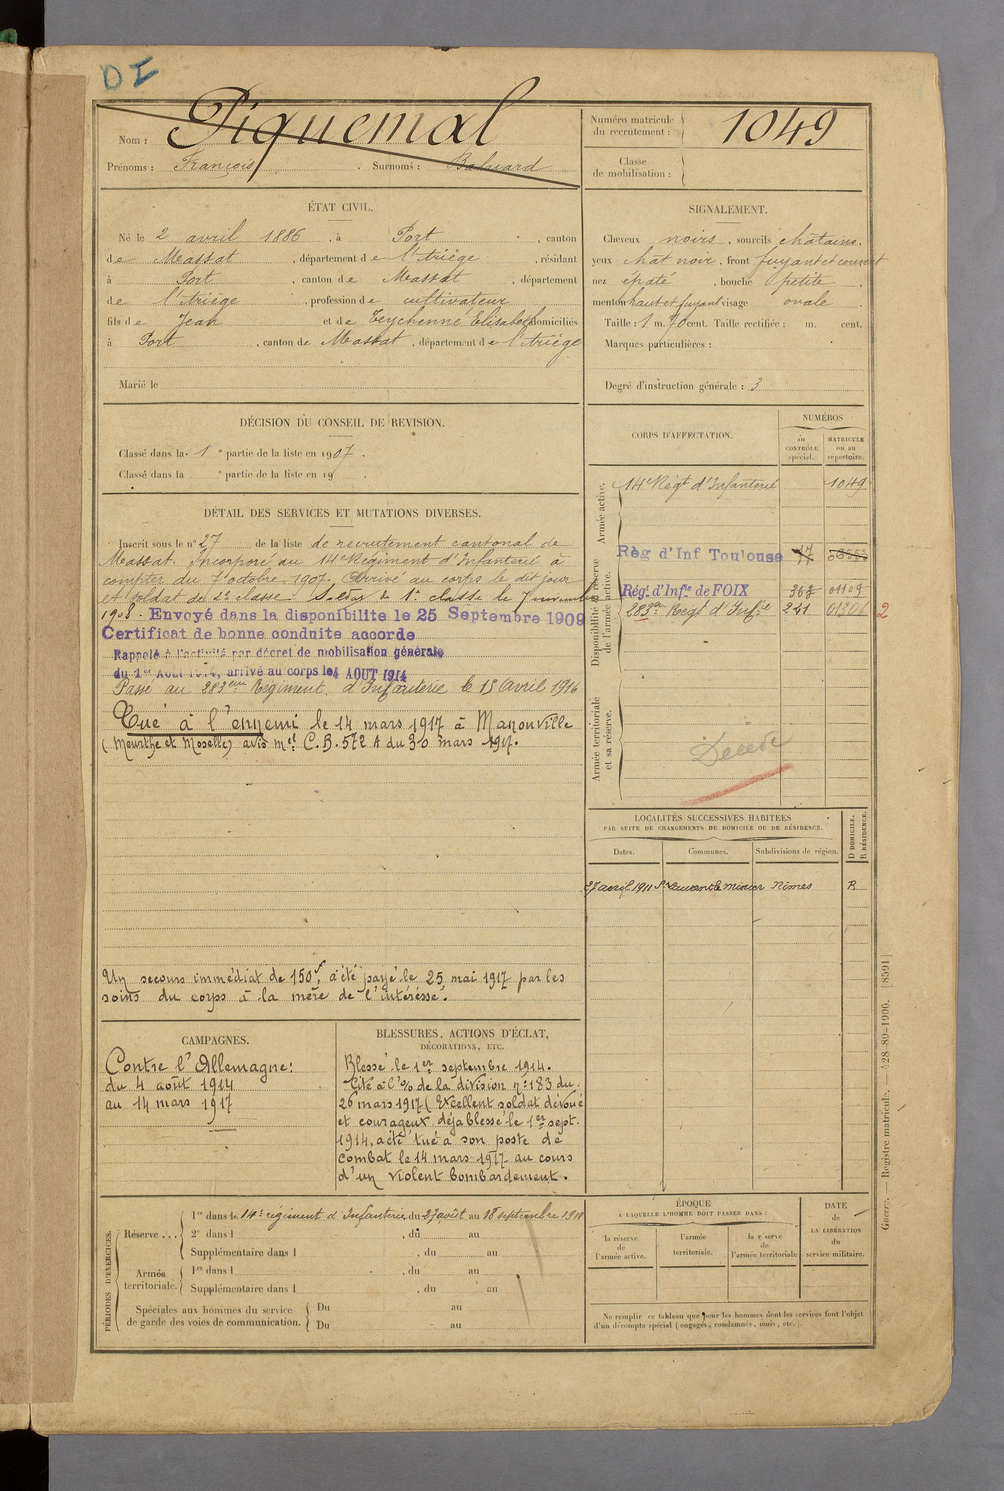 DI
Nom : Piquemal
Prénoms : François. Surnoms : Baluard
Numéro matricule du recrutement : 1049
Classe de mobilisation :
ÉTAT CIVIL.
Né le 2 avril 1886, à Port, canton
de Massat, département de l'Ariège, résidant
à Port, canton de Massat, département
de l'Ariège, profession de cultivateur
fils de Jean et de Teychenné Elisabeth domiciliés
à Port, canton de Massat, département de l'Ariège
Marié le
SIGNALEMENT.
Cheveux noirs, sourcils châtains.
yeux chât noir, front fuyant et couvert
nez épaté, bouche petite,
menton haut et fuyant visage ovale.
Taille : 1 m. 70 cent. Taille rectifiée : m. cent.
Marques particulières :
Degré d'instruction générale : 3
DÉCISION DU CONSEIL DE REVISION.
Classé dans la 1e partie de la liste en 1907.
Classé dans la e partie de la liste en 19 .
DÉTAIL DES SERVICES ET MUTATIONS DIVERSES.
Inscrit sous le n° 27 de la liste de recrutement cantonal de
Massat. Incorporé au 14e Régiment d'Infanterie à
compter du 7 octobre 1907. Arrivé au corps le dit jour
et soldat de 2e classe. Soldat de 1e classe le 7 novembre
1908. Envoyé dans la disponibilite le 25 Septembre 1909
Certificat de bonne conduite accorde
Rappelé à l'activité par décret de mobilisation générale
du 1er Aout 1914, arrivé au corps le 4 AOUT 1914
Passé au 283eme Régiment d'Infanterie le 15 Avril 1916
Tué à l'ennemi le 14 mars 1917 à Manonville
(Meurthe et Moselle) avis mel C.B. 572 A du 30 mars 1917.
Un secours immédiat de 150f, a été payé le 25 mai 1917 par les
soins du corps à la mère de l'intéréssé.
CORPS D'AFFECTATION.
NUMÉROS
au CONTRÔLE spécial.
MATRICULE ou au répertoire.
Armée active.
14e Régt d'Infanterie 1049
Disponibilité et réserve de l'armée active.
Règ d'Inf Toulouse
Rég. d'Infie de FOIX 363 01109
283eme Régt d'Infie 221 01306 2
Armée territoriale et sa réserve.
Décédé
LOCALITÉS SUCCESSIVES HABITÉES
PAR SUITE DE CHANGEMENTS DE DOMICILE OU DE RÉSIDENCE.
Dates. Communes. Subdivisions de région. D DOMICILE. R RÉSIDENCE.
27 avril 1911 St Laurent le minier Nîmes R
CAMPAGNES.
Contre l'Allemagne:
du 4 août 1914
au 14 mars 1917
BLESSURES, ACTIONS D'ÉCLAT,
DÉCORATIONS, ETC.
Blessé le 1er septembre 1914.
Cité à l'% de la division n° 183 du
26 mars 1917 (Excellent soldat dévoué
et courageux, déjà blessé le 1er sept.
1914, a été tué à son poste de
combat le 14 mars 1917 au cours
d'un violent bombardement.
PÉRIODES D'EXERCICES.
Réserve ...
1re dans le 14e régiment d'Infanterie du 27 août au 18 septembre 1911
2e dans l , du au
Supplémentaire dans l , du au
Armée territoriale.
1re dans l , du au
Supplémentaire dans l , du au
Spéciales aux hommes du service
de garde des voies de communication.
Du au
Du au
ÉPOQUE
À LAQUELLE L'HOMME DOIT PASSER DANS :
la réserve de l'armée active.
l'armée territoriale.
la réserve de l'armée territoriale
DATE de LA LIBÉRATION du service militaire.
Ne remplir ce tableau que pour les hommes dont les services font l'objet
d'un décompte spécial (engagés, condamnés, omis, etc.).
Guerre. — Registre matricule. — 428-89-1906. [8591]